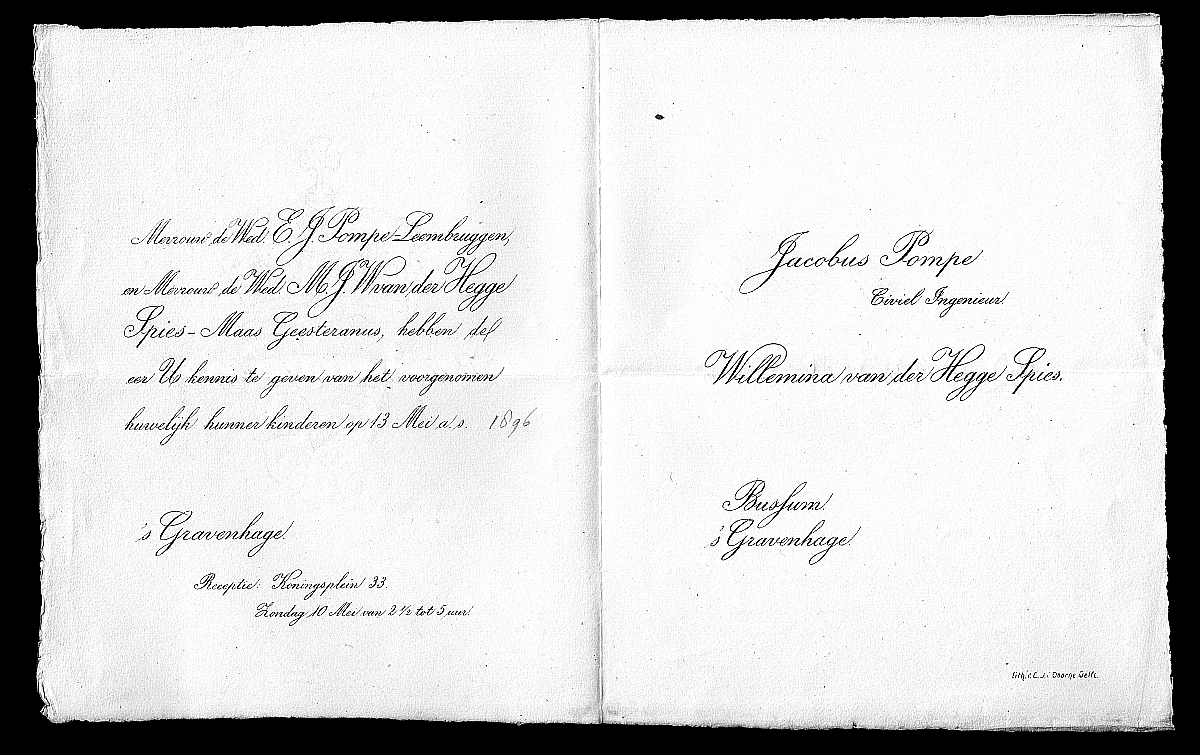 Mevrouw de Wed. E. J. Pompe-Leembruggen,
en Mevrouw de Wed. M. J. W van der Hegge
Spies - Maas Geesteranus, hebben de
eer U kennis te geven van het voorgenomen
huwelijk hunner kinderen op 13 Mei a. s. 1896
's Gravenhage.
Receptie: Koningsplein 33.
Zondag 10 Mei van 2 1/2 tot 5 uur.
Jacobus Pompe
Civiel Ingenieur.
Willemina van der Hegge Spies.
Bussum.
's Gravenhage.
Delft.